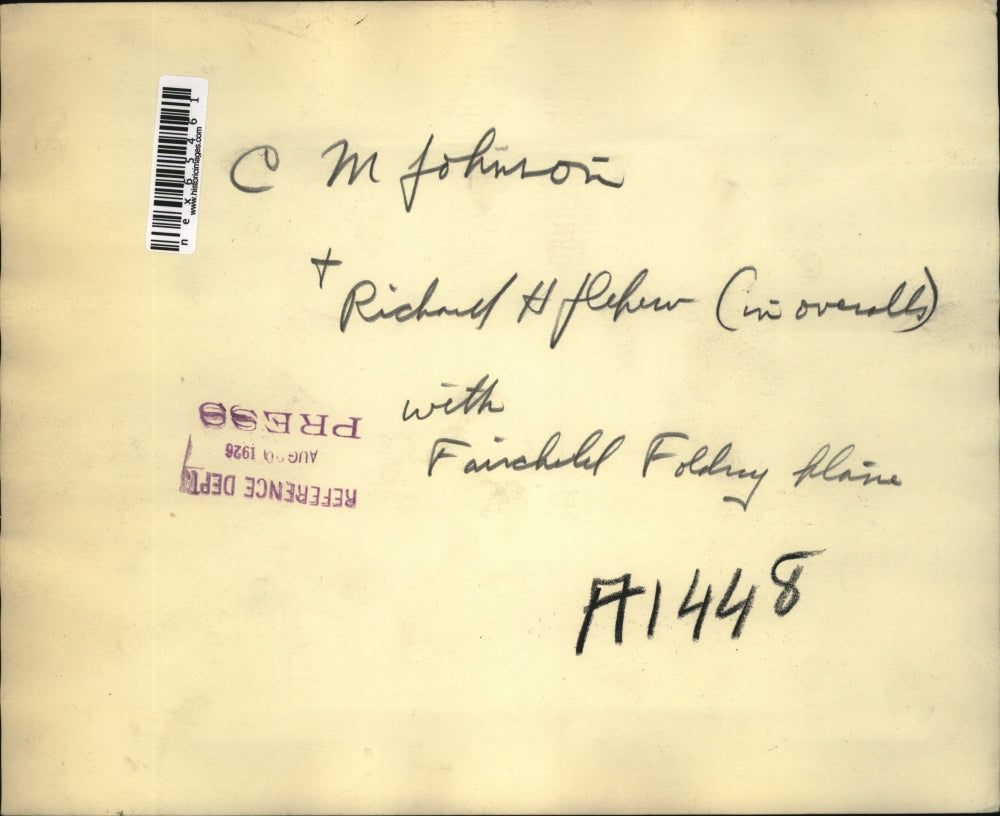 C M Johnson
+
Richard H (in overalls)
with
Fairchild Folding plane
A1448
PRESS
AUG 1928
REFERENCE DEPT.
nex65461
www.historicimages.com